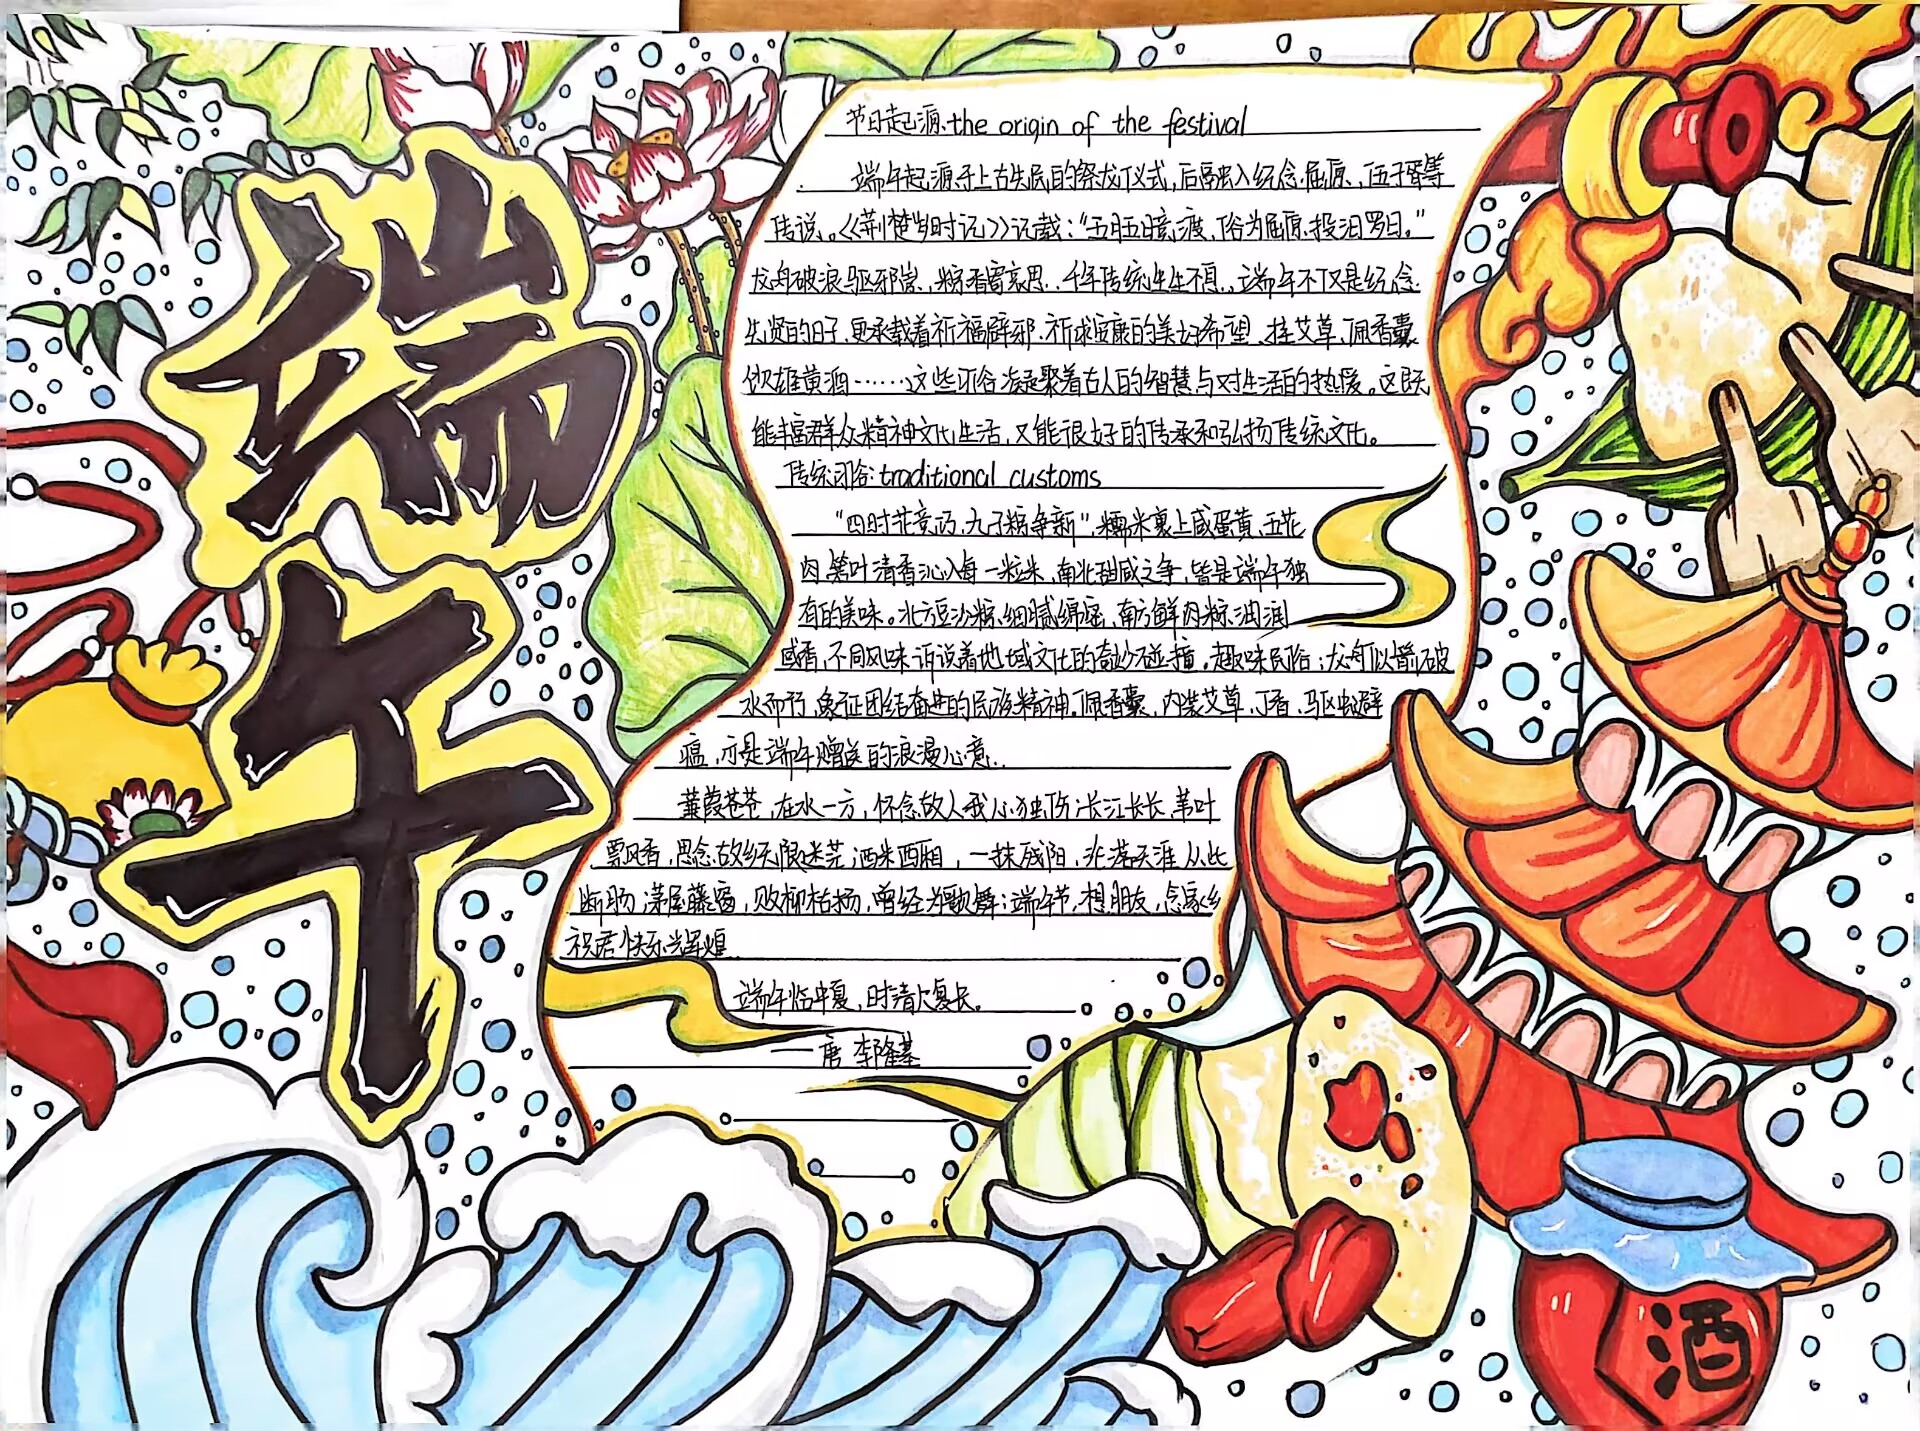 端午
节日起源:the origin of the festival
端午起源于上古先民的祭龙仪式,后融入纪念屈原、伍子胥等
传说。《荆楚岁时记》记载:“五月五日竞渡,俗为屈原投汨罗日。”
龙舟破浪驱邪祟,粽香寄哀思,千年传统生生不息。端午不仅是纪念
先贤的日子,更承载着祈福辟邪、祈求安康的美好希望。挂艾草、佩香囊
饮雄黄酒……这些习俗凝聚着古人的智慧与对生活的热爱。这既
能丰富群众精神文化生活,又能很好的传承和弘扬传统文化。
传统习俗:traditional customs
“四时花竞巧,九子粽争新”,糯米裹上咸蛋黄、五花
肉,箬叶清香沁入每一粒米,南北甜咸之争,皆是端午独
有的美味。北方豆沙粽细腻绵密,南方鲜肉粽油润
咸香,不同风味诉说着地域文化的奇妙碰撞。趣味民俗:龙舟似箭破
水而行,象征团结奋进的民族精神。佩香囊,内装艾草、丁香,驱虫避
瘟,亦是端午赠送的浪漫心意。
蒹葭苍苍,在水一方,怀念故人我心独伤;长江长长,苇叶
飘香,思念故乡无限迷茫;洒米西厢,一抹残阳,沦落天涯从此
断肠;茅屋藤窗,败柳枯杨,曾经为歌舞;端午节,想朋友,念家乡
祝君快乐辉煌
端午临中夏,时清人复长。
——唐 李隆基
酒